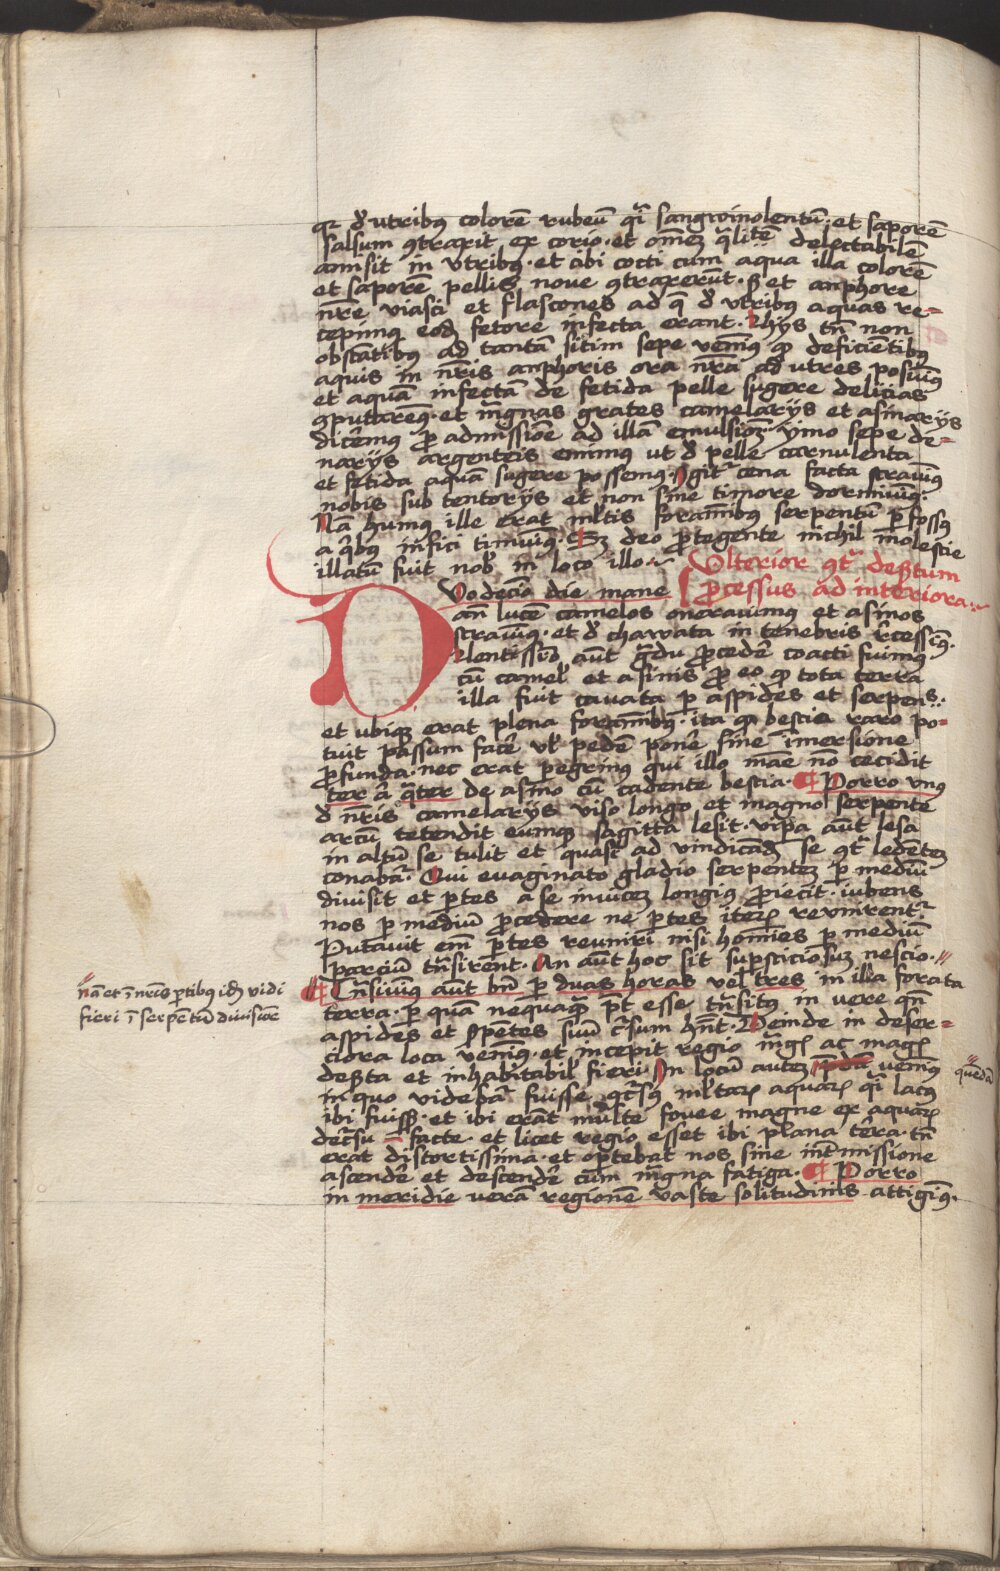 qr de utribꝯ colorē rubeū qͣi sangwinolentū · et saporē
salsum ꝯtraxit ex corio · et om̄eꝫ qͣlitē delectabilē
amisit in utribꝯ · et cibi cocti cum aqua illa colorē
et saporē pellis nove ꝯtraxerūt · sꝫ et amphore
nr̄e viasci et flascones ad qͣ de utribꝯ aquas re=
cepimꝯ eodē fetore infecta erant · Hijs tn̄ non
obstātibꝯ ad tantā sitim sepe venimꝯ qꝫ deficiētibꝯ
aquis in nr̄is amphoris ora nr̄a ad utres posuimꝯ
et aquā infectā de fetida pelle sugere delicias
ꝯputaremꝯ · et mͣgnas grates camelarijs et asinarijs
dicemꝯ ꝓ admissione ad illā emulsionē · ymo sepe de=
narijs argenteis emimꝯ ut de pelle carnulenta
et fetida aquā sugere possemꝯ · Igitͬ cena facta stravimꝯ
nobis sub tentorijs et non sine timore dormivimꝯ ·
Nā humꝯ ille erat ml̄tis foraminibꝯ serpentū ꝑfossꝯ
a qͥbꝯ infici timuimꝯ · Sꝫ deo ꝓtegente nichil molestie
illatū fuit nob̄ in loco illo ·
Ulterior ꝯtͣ desertum
ꝓcessus ad interiora ·
Duodecīo die mane
an̄ lucē camelos oneravimus et asinos
stravimꝯ · et de chawata in tenebris rēcessimꝯ ·
Lentissīo aut̄ gͣdu ꝓcedē coacti fuimꝯ
cū camel̄ et asinis ꝓ eo qꝫ tota terra
illa fuit cavata ꝑ aspides et serpens ·
et ubiqꝫ erat plena foraminibꝯ · ita qꝫ bestia raro po=
tuit passum facē vl̄ pedē ponē sine īmersione
ꝓfunda · nec erat peregrinꝯ qui illo mane nō cecidit
ter aut qͣter de asino cū cadente bestia · ¶ Porro unꝯ
de nr̄is camelarijs viso longo et magno serpente
arcū tetendit eumqꝫ sagitta lesit · vipa aut̄ lesa
in altū se tulit et quasi ad vindicandū se ꝯtͣ ledentē
conabatͬ · Qui evaginato gladio serpentem ꝑ mediū
divisit et ꝑtes a se invicem longiꝯ ꝓiecit · iubens
nos ꝑ mediū ꝓcedere ne ꝑtes iteꝝ reunirentͬ
Putavit em̄ ꝑtes reuniri nisi homīes ꝑ mediū
parciū tn̄sirent · An aut̄ hoc sit supsticiosuꝫ nescio ·
nā et ī nr̄is ꝑtibꝯ idē vidi
fieri ī serpētū divisione
¶ Tn̄sivimꝯ aut̄ bn̄ ꝑ duas horas vel tres in illa forata
terra · ꝑ quā nequaqͣ pt̄ esse tn̄sitꝯ in vere qn̄
aspides et serpētes suū cͬsum hn̄t · Deinde in deser=
ciora loca venimꝯ · et incepit regio mͣgꝭ ac magꝭ
deserta et inhabitabil̄ fieri · In locū autem venimꝯ
quēdā
in quo videbatͬ fuisse ꝯcͬsꝯ ml̄taꝝ aquaꝝ qͣi lacꝯ
ibi fuissꝫ · et ibi erāt multe fovee magne ex aquaꝝ
decͬsu facte · et licet regio esset ibi plana terra · tn̄
erat distortissima · et oportebat nos sine intͬmissione
ascendē et descendē cum mͣgna fatiga · ¶ Porro
in meridie verā regionē vaste solitudinis attigimꝯ ·